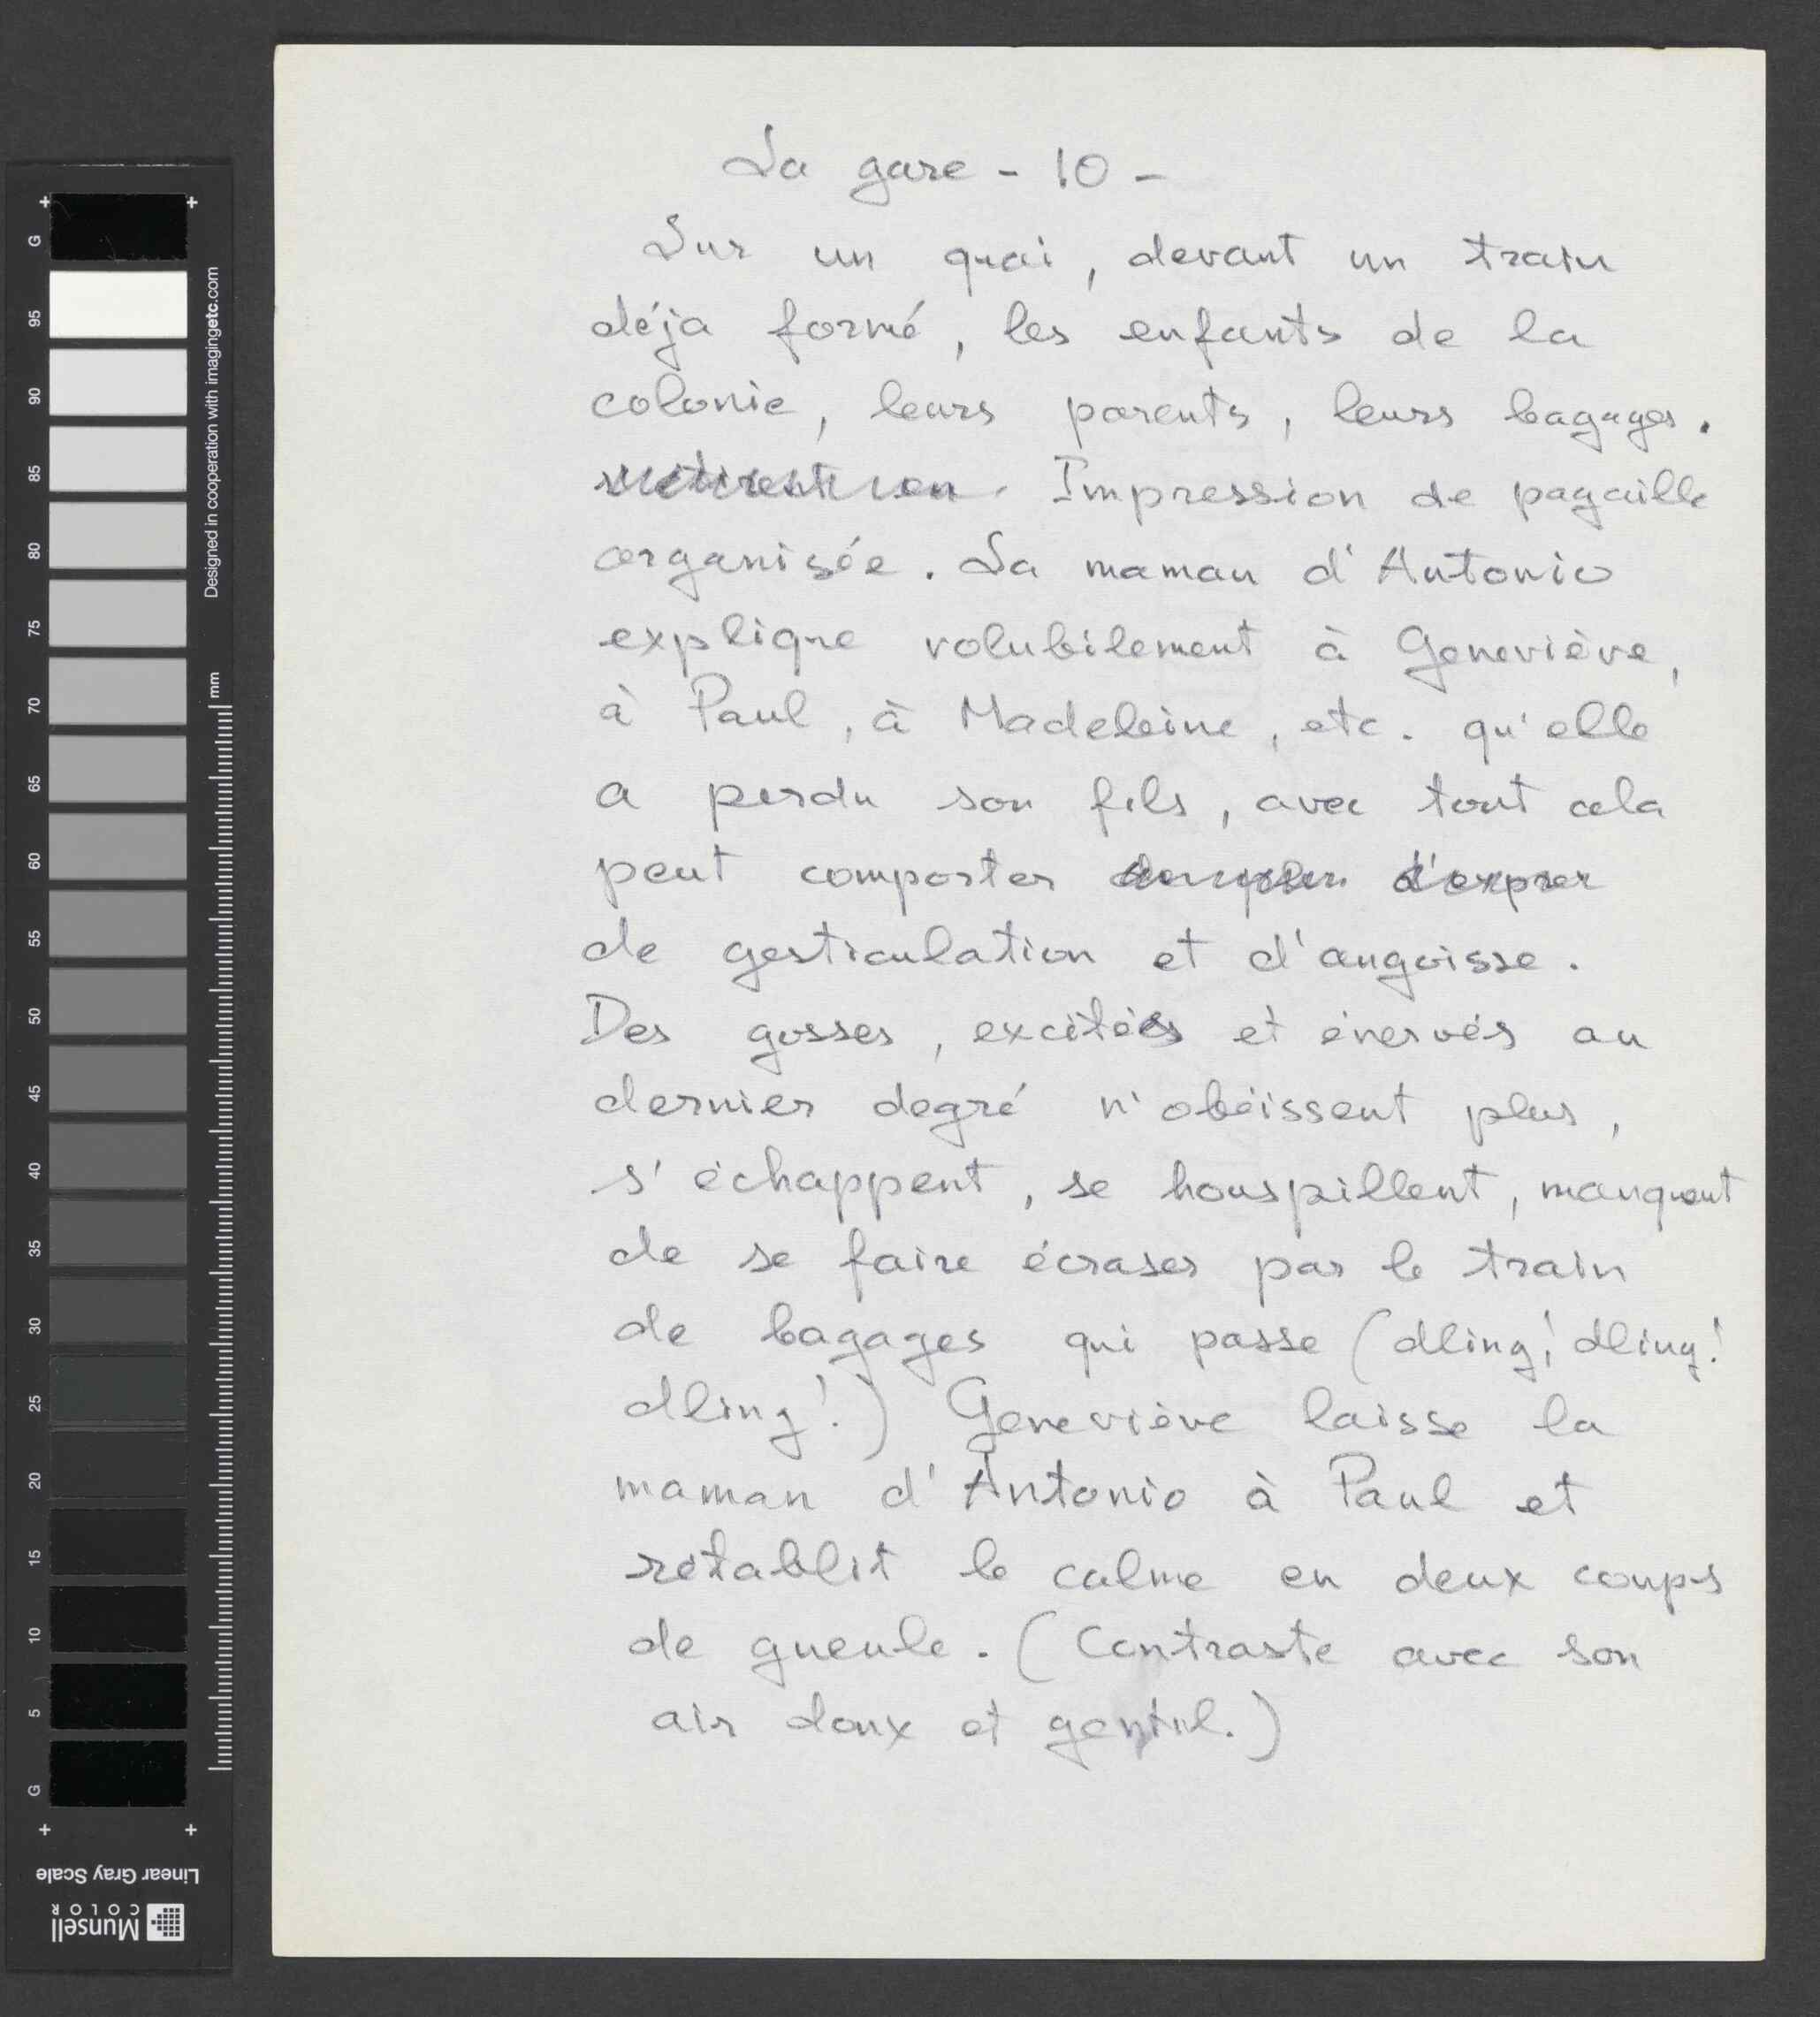 La gare - 10 -
Sur un quai, devant un train
déja formé, les enfants de la
colonie, leurs parents, leurs bagages.
Impression de pagaille
organisée. La maman d'Antonio
explique volubilement à Geneviève,
à Paul, à Madeleine, etc. qu'elle
a perdu son fils, avec tout cela
peut comporter
de gesticulation et d'angoisse.
Des gosses, excités et énervés au
dernier degré n'obéissent plus,
s'échappent, se houspillent, manquent
de se faire écraser par le train
de bagages qui passe (dling! dling!
dling!) Geneviève laisse la
maman d'Antonio à Paul et
rétablit le calme en deux coups
de gueule. (Contraste avec son
air doux et gentil.)
G
95
90
85
80
75
70
65
60
55
50
45
40
35
30
25
20
15
10
5
G
Designed in cooperation with imagingetc.com
mm
Linear Gray Scale
Munsell
COLOR